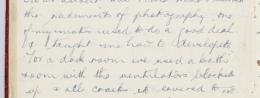 the rudiments of photography one
of my mates used to do a good deal
& taught me how to develope
For a dark room we used a bath
room with the ventilators blocked
up & all cracks etc covered to